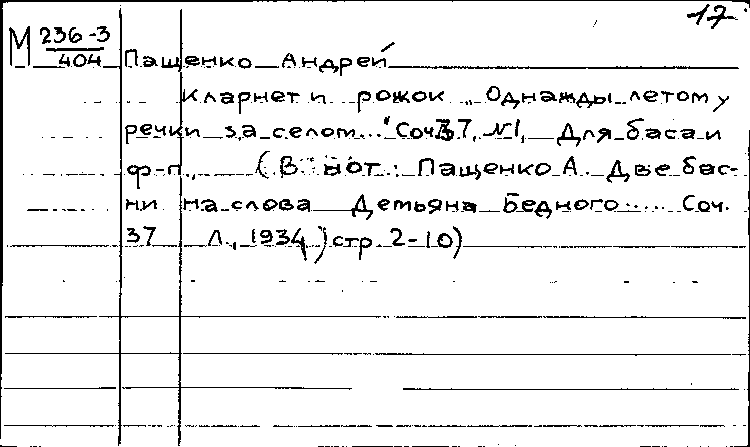 17
М 236-3
404 Пащенко Андрей
Кларнет и рожок „Однажды летом у
речки за селом..." Соч. 37, №1, Для баса и
ф-п., (В нот.: Пащенко А. Две бас-
ни на слова Демьяна Бедного.... Соч.
37 Л., 1934) стр. 2-10)